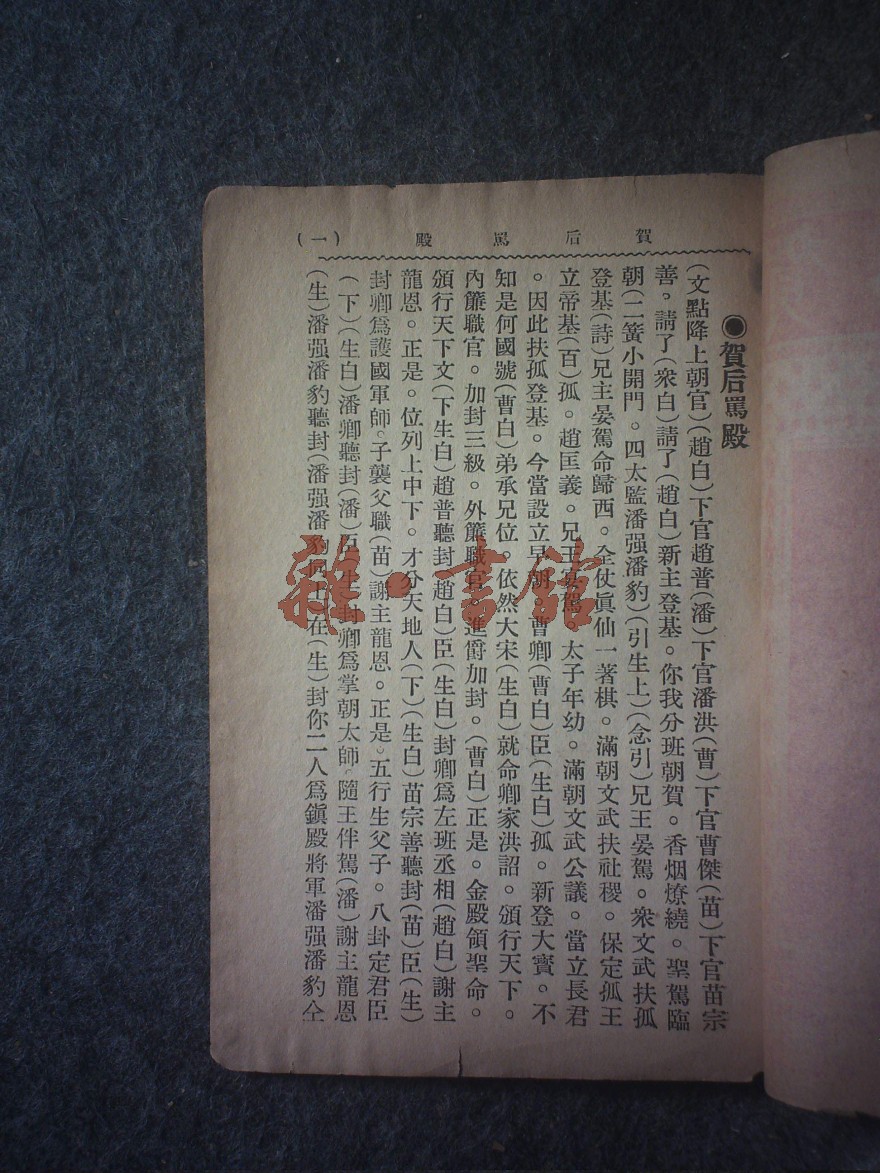 賀后罵殿 (一)
◉賀后罵殿
(文點降上朝官)(趙白)下官趙普(潘)下官潘洪(曹)下官曹傑(苗)下官苗宗
善。請了(衆白)請了(趙白)新主登基。你我分班朝賀。香烟燎繞。聖駕臨
朝(二簧小開門。四太監潘强潘豹)(引生上)(念引)兄王晏駕。衆文武扶孤
登基(詩)兄主晏駕命歸西。全仗眞仙一著棋。滿朝文武扶社稷。保定孤王
立帝基(百)孤。趙匡義。兄王宴駕。太子年幼。滿朝文武公議。當立長君
。因此扶孤登基。今當設立早朝。曹卿(曹白)臣(生白)孤。新登大寳。不
知是何國號(曹白)弟承兄位。依然大宋(生白)就命卿家洪詔。頒行天下。
內簾職官。加封三級。外簾職官。進爵加封。(曹白)正是。金殿領聖命。
頒行天下文(下生白)趙普聽封(趙白)臣(生白)封卿爲左班丞相(趙白)謝主
龍恩。正是。位列上中下。才分天地人(下)(生白)苗宗善聽封(苗)臣(生)
封卿爲護國軍師。子襲父職(苗)謝主龍恩。正是。五行生父子。八卦定君臣
(下)(生白)潘卿聽封(潘)臣(生)封卿爲掌朝太師。隨王伴駕(潘)謝主龍恩
(生)潘强潘豹聽封(潘强潘豹仝上)在(生)封你二人爲鎭殿將軍潘强潘豹仝
雜·書館